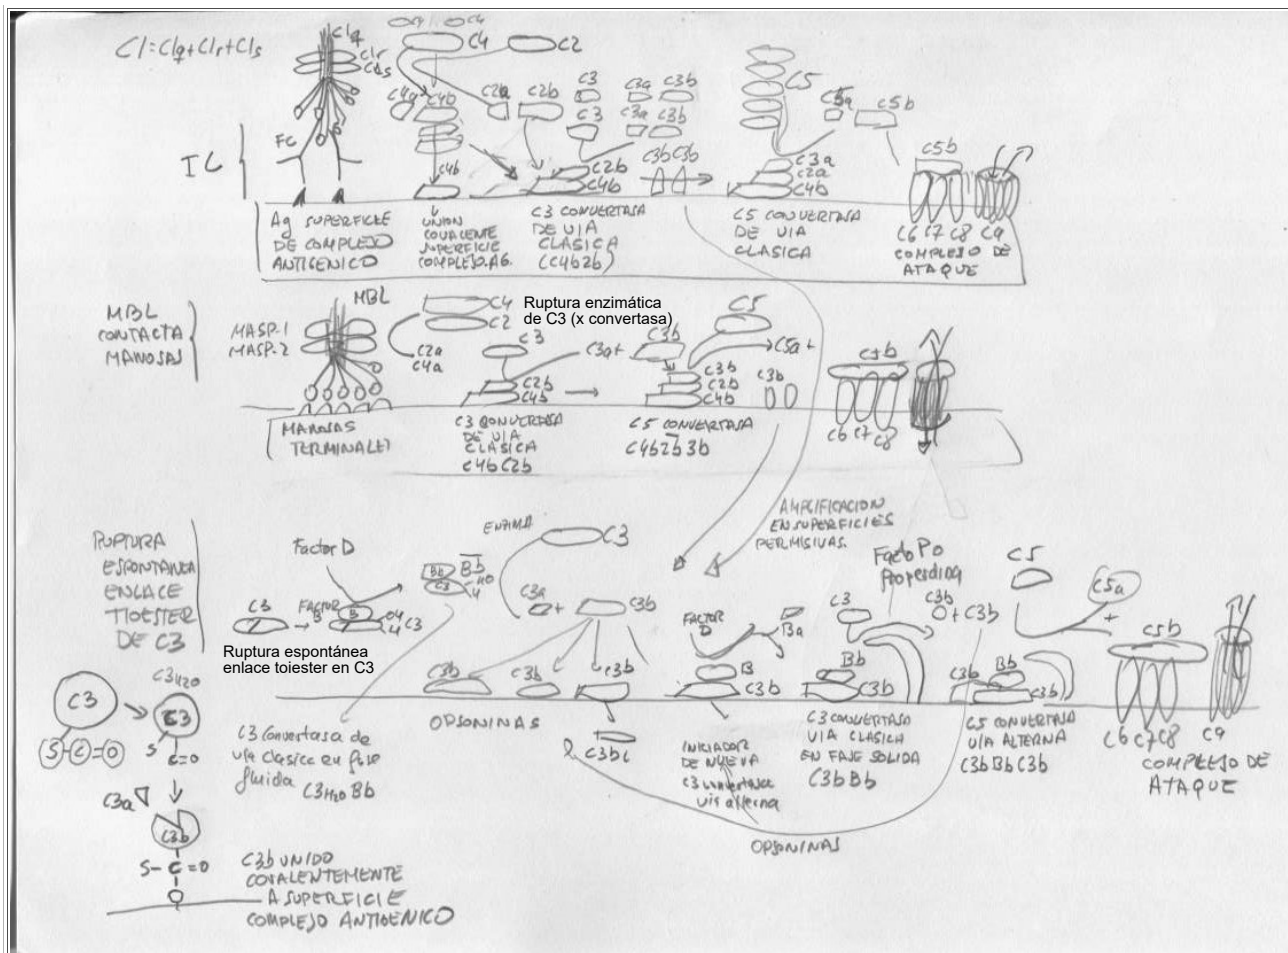 C1=C1q+C1r+C1s
C1q
C1r
C1s
FC
IC
C4
C2
C4a
C4b
C2a
C2b
C3
C3a
C3b
C3
C3a
C3b
C4b
C2b
C4b
C3b C3b
C5
C5a
C5b
C3a
C2a
C4b
C5b
C6 C7 C8 C9
COMPLEJO DE
ATAQUE
Ag SUPERFICIE
DE COMPLEJO
ANTIGENICO
UNION
COVALENTE
SUPERFICIE
COMPLEJO.AG.
C3 CONVERTASA
DE VIA
CLASICA
(C4b2b)
C5 CONVERTASA
DE VIA
CLASICA
MBL
CONTACTA
MANOSAS
MBL
MASP-1
MASP-2
C4
C2
C2a
C4a
Ruptura enzimática
de C3 (x convertasa)
C3
C3a+
C3b
C2b
C4b
C5
C5a+
C3b
C2b
C4b
C3b
C5b
C6 C7 C8
MANOSAS
TERMINALES
C3 CONVERTASA
DE VIA
CLASICA
C4bC2b
C5 CONVERTASA
C4b2b3b
AMPLIFICACION
EN SUPERFICIES
PERMISIVAS
RUPTURA
ESPONTANEA
ENLACE
TIOESTER
DE C3
Factor D
C3
FACTOR
B
B
C3
Bb
C3
Bb
Ruptura espontánea
enlace toiester en C3
ENZIMA
C3
C3a
+
C3b
C3b
C3b
C3b
OPSONINAS
C3bi
FACTOR
D
Ba
B
C3b
INICIADOR
DE NUEVA
C3 convertasa
via alterna
C3
Bb
C3b
Properdina
C3b
+ C3b
C3 CONVERTASA
VIA CLASICA
EN FASE SOLIDA
C3bBb
C5
C5a
+
C3b
Bb
C3b
C5 CONVERTASA
VIA ALTERNA
C3bBbC3b
C5b
C6 C7 C8
C9
COMPLEJO DE
ATAQUE
OPSONINAS
C3 Convertasa de
via clasica en fase
fluida
C3H2O Bb
C3
S-C=O
C3H2O
C3
S
C=O
C3a
C3b
S-C=O
O
C3b UNIDO
COVALENTEMENTE
A SUPERFICIE
COMPLEJO ANTIGENICO